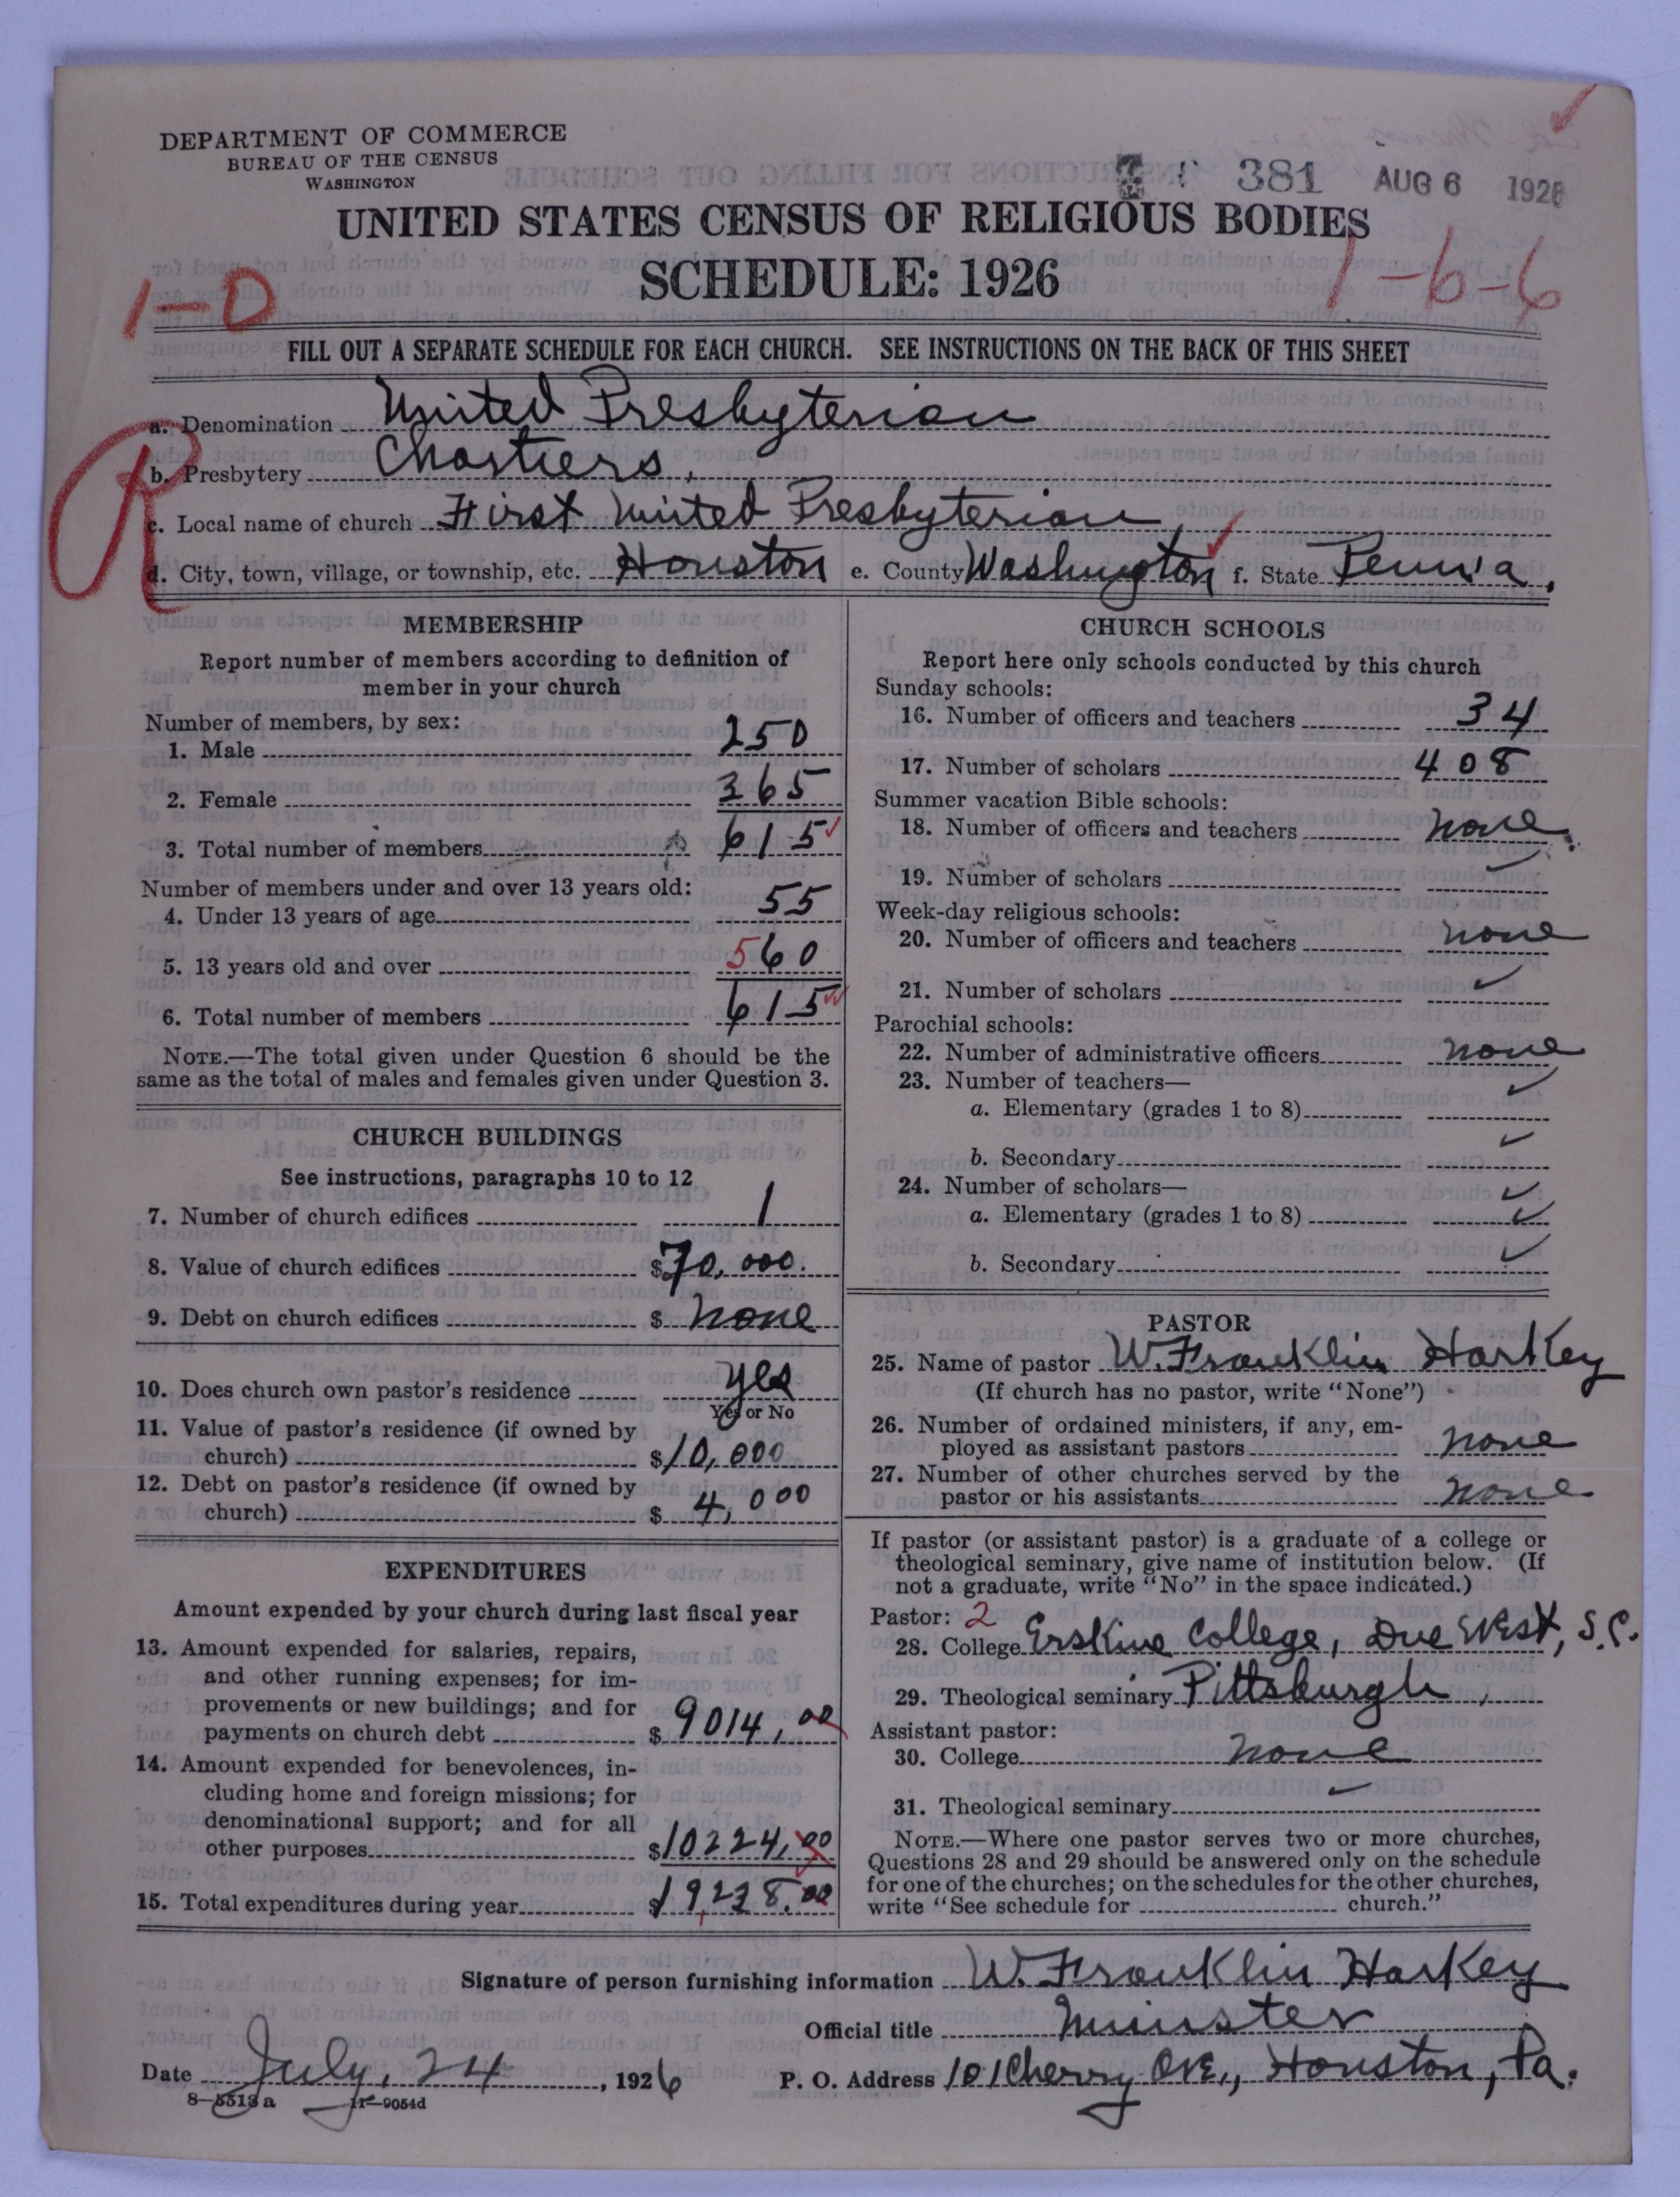 DEPARTMENT OF COMMERCE
BUREAU OF THE CENSUS
WASHINGTON
381 AUG 6 1926
UNITED STATES CENSUS OF RELIGIOUS BODIES
SCHEDULE: 1926
1-0
1-6-6
FILL OUT A SEPARATE SCHEDULE FOR EACH CHURCH. SEE INSTRUCTIONS ON THE BACK OF THIS SHEET
R
a. Denomination United Presbyterian
b. Presbytery Chartiers,
c. Local name of church First United Presbyterian,
d. City, town, village, or township, etc. Houston e. County Washington f. State Penn'a.
MEMBERSHIP
Report number of members according to definition of
member in your church
Number of members, by sex:
1. Male 250
2. Female 365
3. Total number of members 615
Number of members under and over 13 years old:
4. Under 13 years of age 55
5. 13 years old and over 560
6. Total number of members 615
NOTE.—The total given under Question 6 should be the
same as the total of males and females given under Question 3.
CHURCH BUILDINGS
See instructions, paragraphs 10 to 12
7. Number of church edifices 1
8. Value of church edifices $70,000.
9. Debt on church edifices $ none
10. Does church own pastor's residence yes
Yes or No
11. Value of pastor's residence (if owned by
church) $10,000
12. Debt on pastor's residence (if owned by
church) $ 4,000
EXPENDITURES
Amount expended by your church during last fiscal year
13. Amount expended for salaries, repairs,
and other running expenses; for im-
provements or new buildings; and for
payments on church debt $ 9014.00
14. Amount expended for benevolences, in-
cluding home and foreign missions; for
denominational support; and for all
other purposes $10224.00
15. Total expenditures during year $19,238.00
CHURCH SCHOOLS
Report here only schools conducted by this church
Sunday schools:
16. Number of officers and teachers 34
17. Number of scholars 408
Summer vacation Bible schools:
18. Number of officers and teachers none.
19. Number of scholars
Week-day religious schools:
20. Number of officers and teachers none
21. Number of scholars
Parochial schools:
22. Number of administrative officers none
23. Number of teachers—
a. Elementary (grades 1 to 8)
b. Secondary
24. Number of scholars—
a. Elementary (grades 1 to 8)
b. Secondary
PASTOR
25. Name of pastor W. Franklin Harkey
(If church has no pastor, write "None")
26. Number of ordained ministers, if any, em-
ployed as assistant pastors none
27. Number of other churches served by the
pastor or his assistants none
If pastor (or assistant pastor) is a graduate of a college or
theological seminary, give name of institution below. (If
not a graduate, write "No" in the space indicated.)
Pastor: 2
28. College Erskine College, Due West, S.C.
29. Theological seminary Pittsburgh,
Assistant pastor:
30. College none
31. Theological seminary
NOTE.—Where one pastor serves two or more churches,
Questions 28 and 29 should be answered only on the schedule
for one of the churches; on the schedules for the other churches,
write "See schedule for church."
Signature of person furnishing information W. Franklin Harkey
Official title Minister
Date July, 24, 1926 P. O. Address 101 Cherry Ave., Houston, Pa.
8—5513a 11—9054d